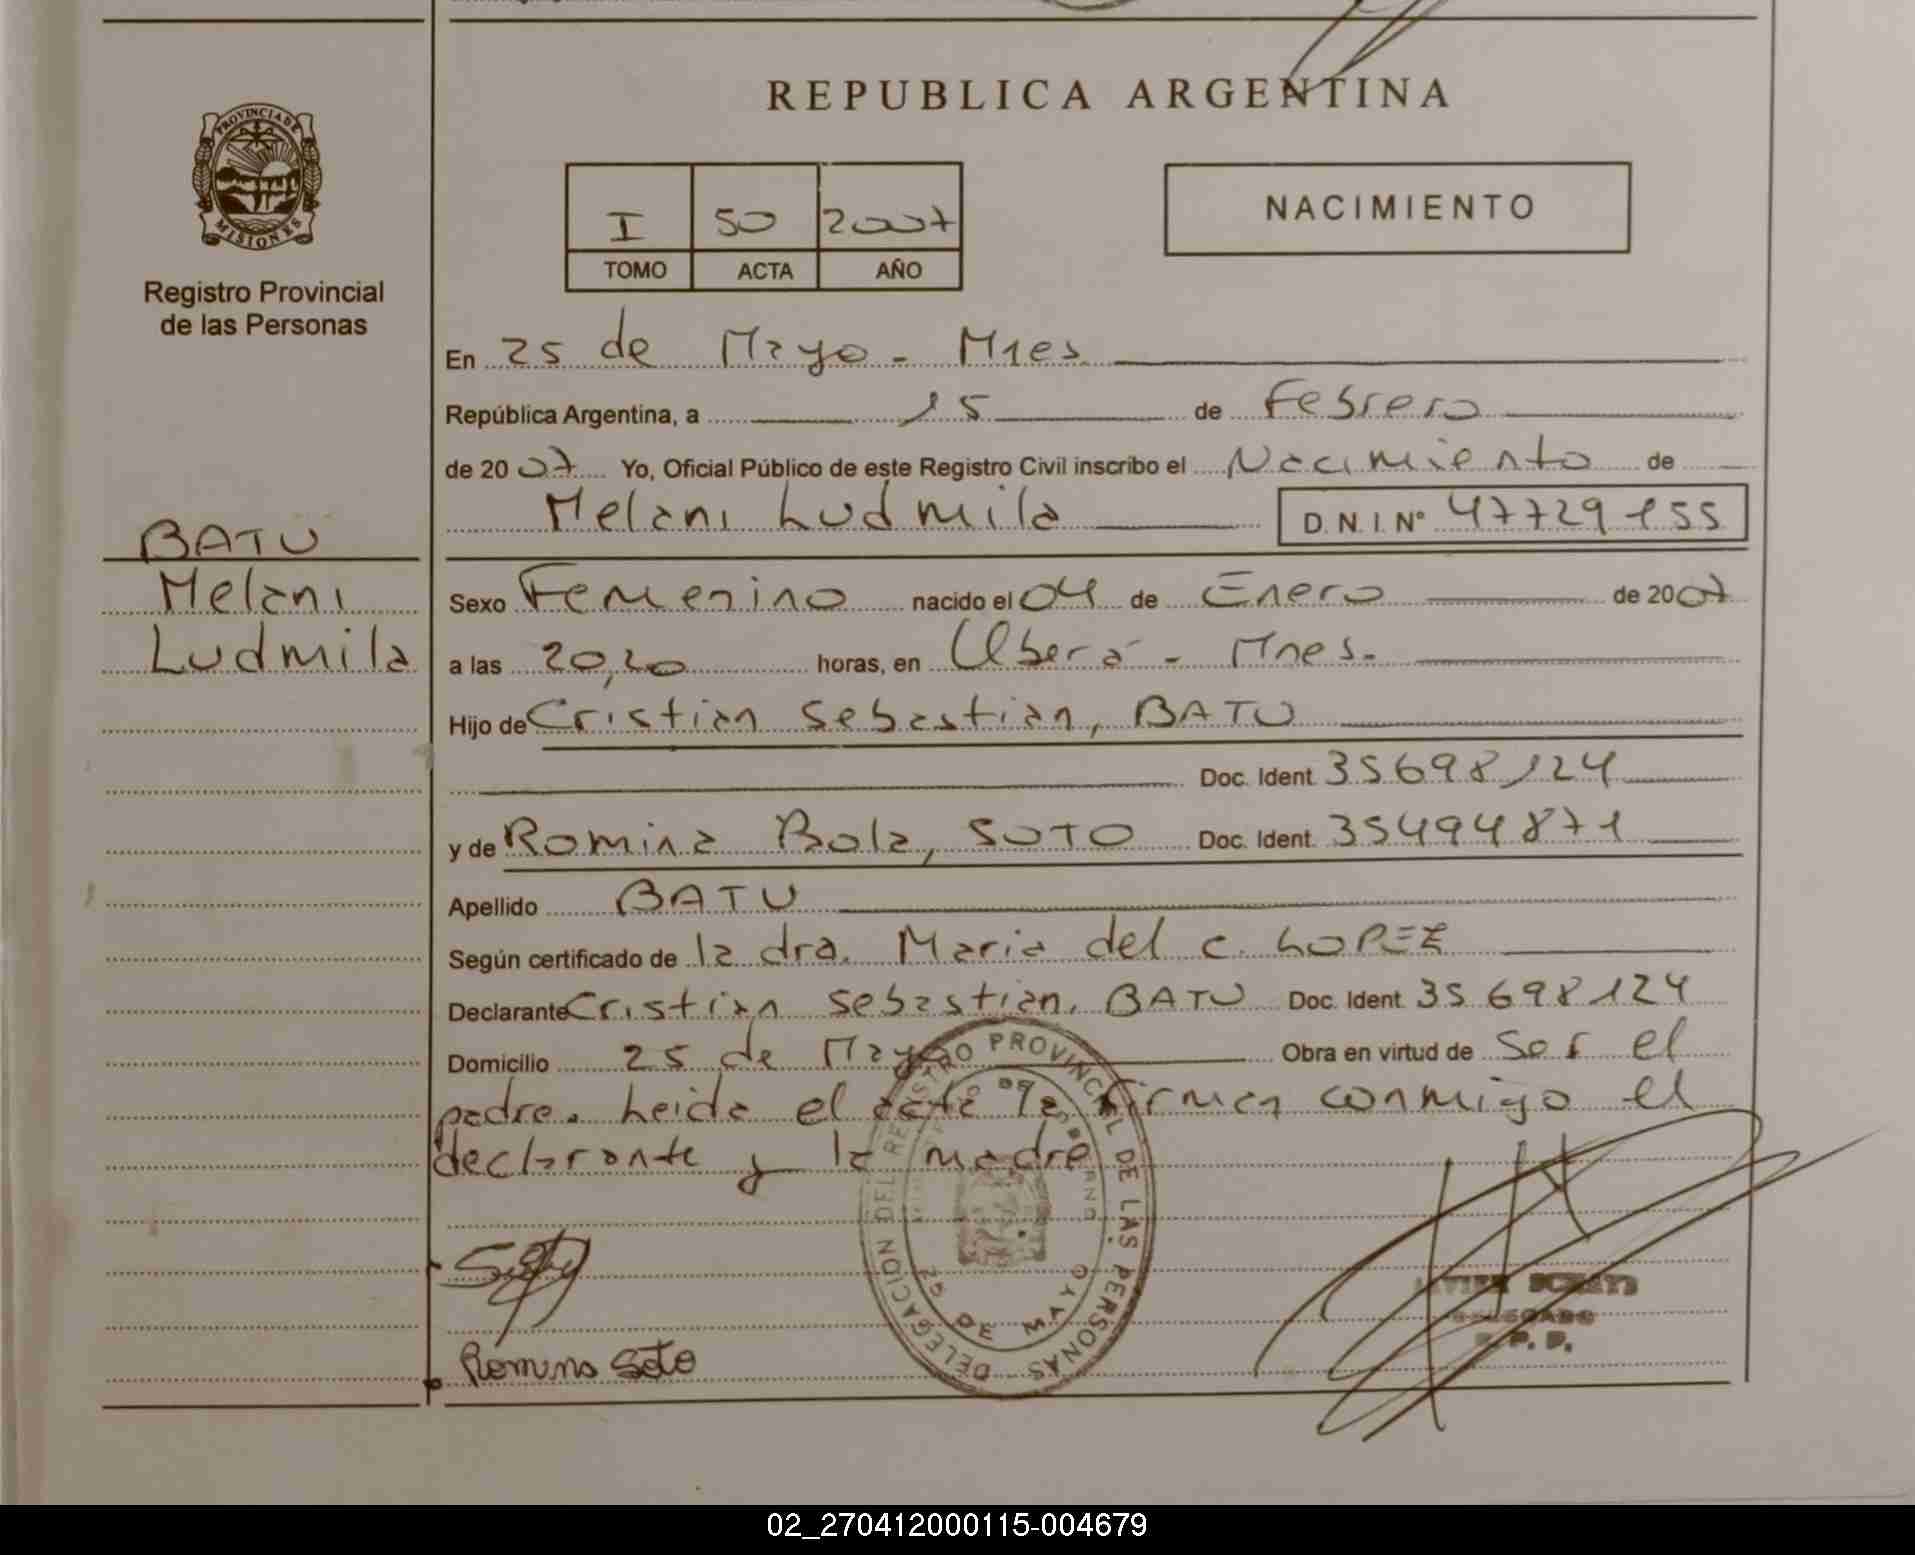 REPUBLICA ARGENTINA
PROVINCIA DE
MISIONES
Registro Provincial
de las Personas
I 50 2007
TOMO ACTA AÑO
NACIMIENTO
En 25 de Mayo - Mnes
República Argentina, a 15 de Febrero
de 2007 Yo, Oficial Público de este Registro Civil inscribo el Nacimiento de
Melani Ludmila D.N.I. N° 47729155
BATU
Melani
Ludmila
Sexo Femenino nacido el 04 de Enero de 2007
a las 20,20 horas, en Oberá - Mnes.
Hijo de Cristian Sebastian, BATU
Doc. Ident. 35698124
y de Romina Bola, SOTO Doc. Ident. 35494871
Apellido BATU
Según certificado de la dra. Maria del C. LOPEZ
Declarante Cristian Sebastian, BATU Doc. Ident. 35698124
Domicilio 25 de Mayo Obra en virtud de ser el
padre. Leida el acta la firman conmigo el
declarante y la madre
DELEGACION DEL REGISTRO PROVINCIAL DE LAS PERSONAS
25 DE MAYO
Romina Soto
DELEGADO
02_270412000115-004679